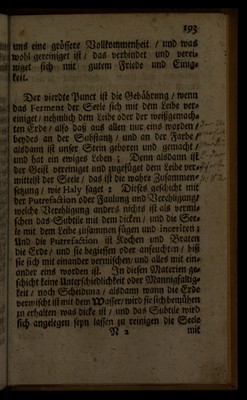 193
uns eine grössere Vollkommenheit / und was
wohl gereiniget ist / das verbindet und verei-
niget sich mit gutem Friede und Einig-
keit.
Der vierdte Punct ist die Gebährung / wenn
das Ferment der Seele sich mit dem Leibe ver-
einiget / nehmlich dem Leibe oder der weißgemach-
ten Erde / also daß aus allen nur eins werden /
beydes an der Substanz / und an der Farbe /
alsdann ist unser Stein geboren und gemacht /
und hat ein ewiges Leben; Denn alsdann ist
der Geist vereiniget und zugefüget dem Leibe ver-
mittelst der Seele / das ist die wahre Zusammen-
setzung / wie Haly saget: Dieses geschicht mit
der Putrefaction oder Faulung und Verehligung/
welche Verehligung anders nichts ist als vermi-
schen das Subtile mit dem dicken / und die See-
le mit dem Leibe zusammen fügen und inceriren:
Und die Putrefaction ist Kochen und Braten
die Erde / und sie begiessen oder anfeuchten / biß
sie sich mit einander vermischen/und alles mit ein-
ander eins worden ist. In diesen Materien ge-
schicht keine Unterschiedlichkeit oder Mannigfaltig-
keit / noch Scheidung / alsdann wann die Erde
vermischt ist mit dem Wasser / wird sie sich bemühen
zu erhalten was dicke ist / und das Subtile wird
sich angelegen seyn lassen zu reinigen die Seele
N 2 mit